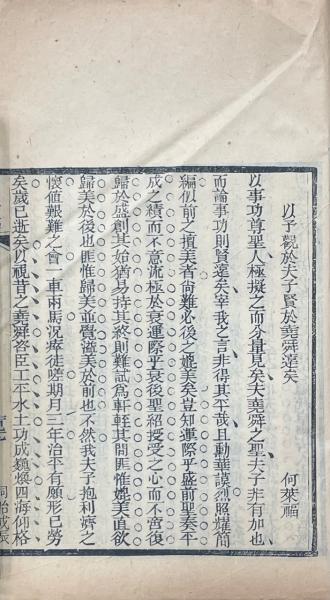 以予觀於夫子賢於堯舜遠矣
何葉福
以事功尊聖人極擬之而分量見矣夫堯舜之聖夫子非有加也
而論事功則賢遠矣宰我之言非得其平哉且勳華謨烈照燿簡
編似前之擅美者尚難必後之媲美矣豈知運際乎盛前聖奏平
成之績而不意流極於衰運際乎衰後聖紹授受之心而不啻復
歸於盛創其始猶易持其終則難試為軒輊其間匪惟媲美直欲
歸美於後也匪惟歸美並覺溢美於前也不然我夫子抱利濟之
懷值艱難之會一車兩馬況瘁徒嗟期月三年治平有願形已勞
矣歲已逝矣以視昔之堯舜咨臣工平水土功成巍煥四海仰格
同治戊辰